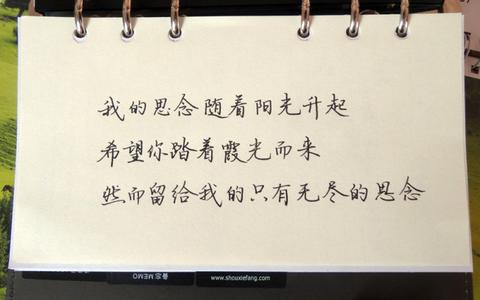 我的思念随着阳光升起
希望你踏着霞光而来
然而留给我的只有无尽的思念
番忘 MEMO
www.shouxiefang.com